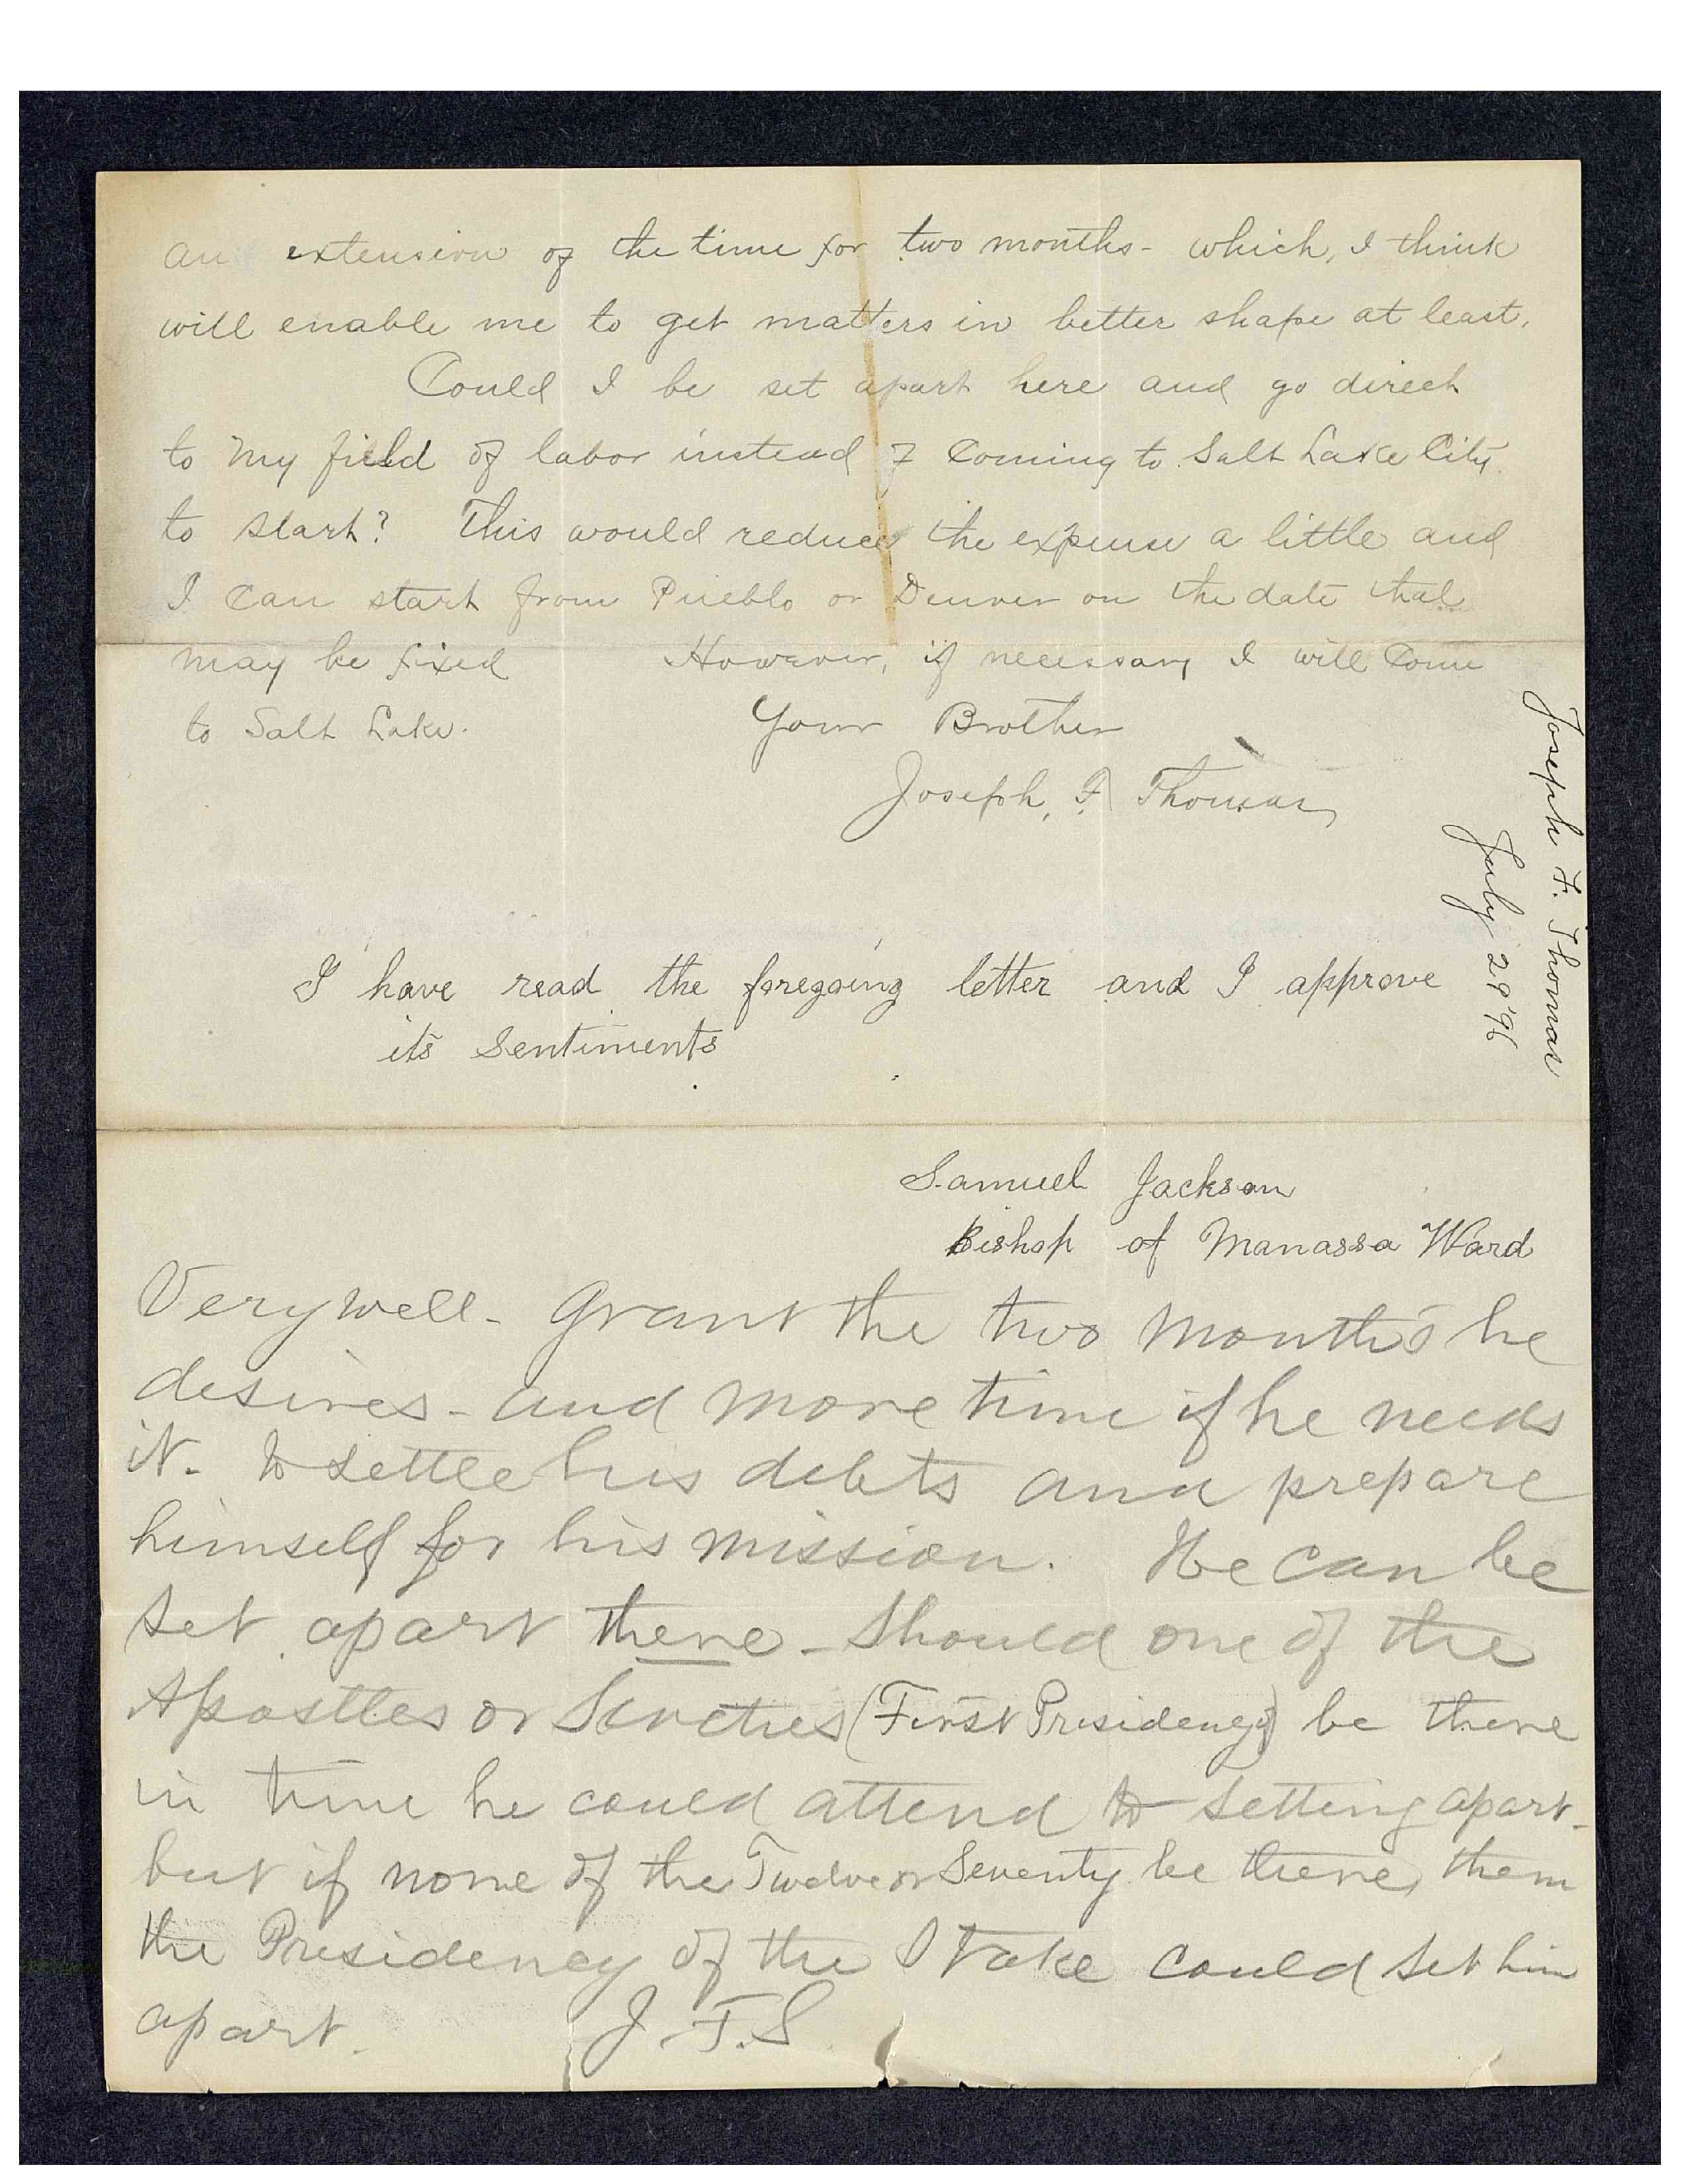 an extension of the time for two months - which, I think
will enable me to get matters in better shape at least.
Could I be set apart here and go direct
to my field of labor instead of coming to Salt Lake City
to start? This would reduce the expense a little and
I can start from Pueblo or Denver on the date that
may be fixed However, if necessary I will come
to Salt Lake.
Your Brother
Joseph, F. Thomas
Joseph F. Thomas
July 29 '96
I have read the foregoing letter and I approve
its Sentiments
Samuel Jackson
Bishop of Manassa Ward
Very well - Grant the two months he
desires - and more time if he needs
it - to settle his debts and prepare
himself for his mission. He can be
set apart there - should one of the
Apostles or Seventies (First Presidency) be there
in time he could attend to setting apart -
but if none of the Twelve or Seventy be there, them
the Presidency of the Stake could set him
apart. J. F. S